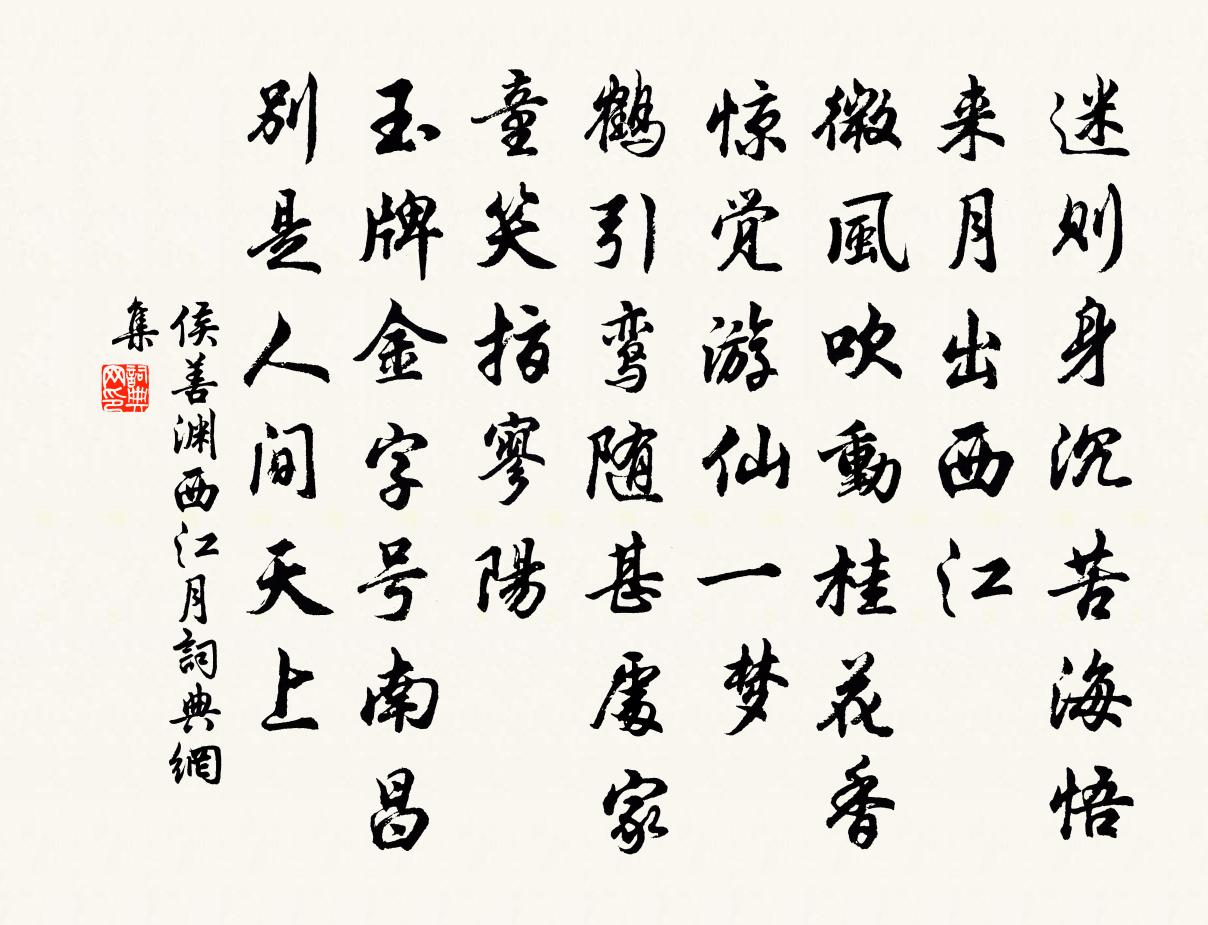 迷则身沉苦海悟
来月出西江
微風吹動桂花香
惊觉游仙一梦
鹤引鸾随甚處家
童笑指寥陽
玉牌金字号南昌
别是人间天上
侯善渊西江月詞典網
集
詞典网印